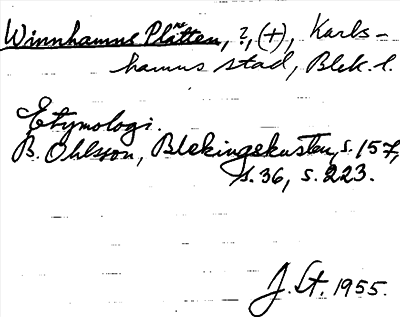 Winnhamns Platten, ?, (+), Karls-
hamns stad, Blek. l.
Etymologi.
B. Ohlsson, Blekingekusten, s. 157,
s. 36, s. 223.
J. St. 1955.